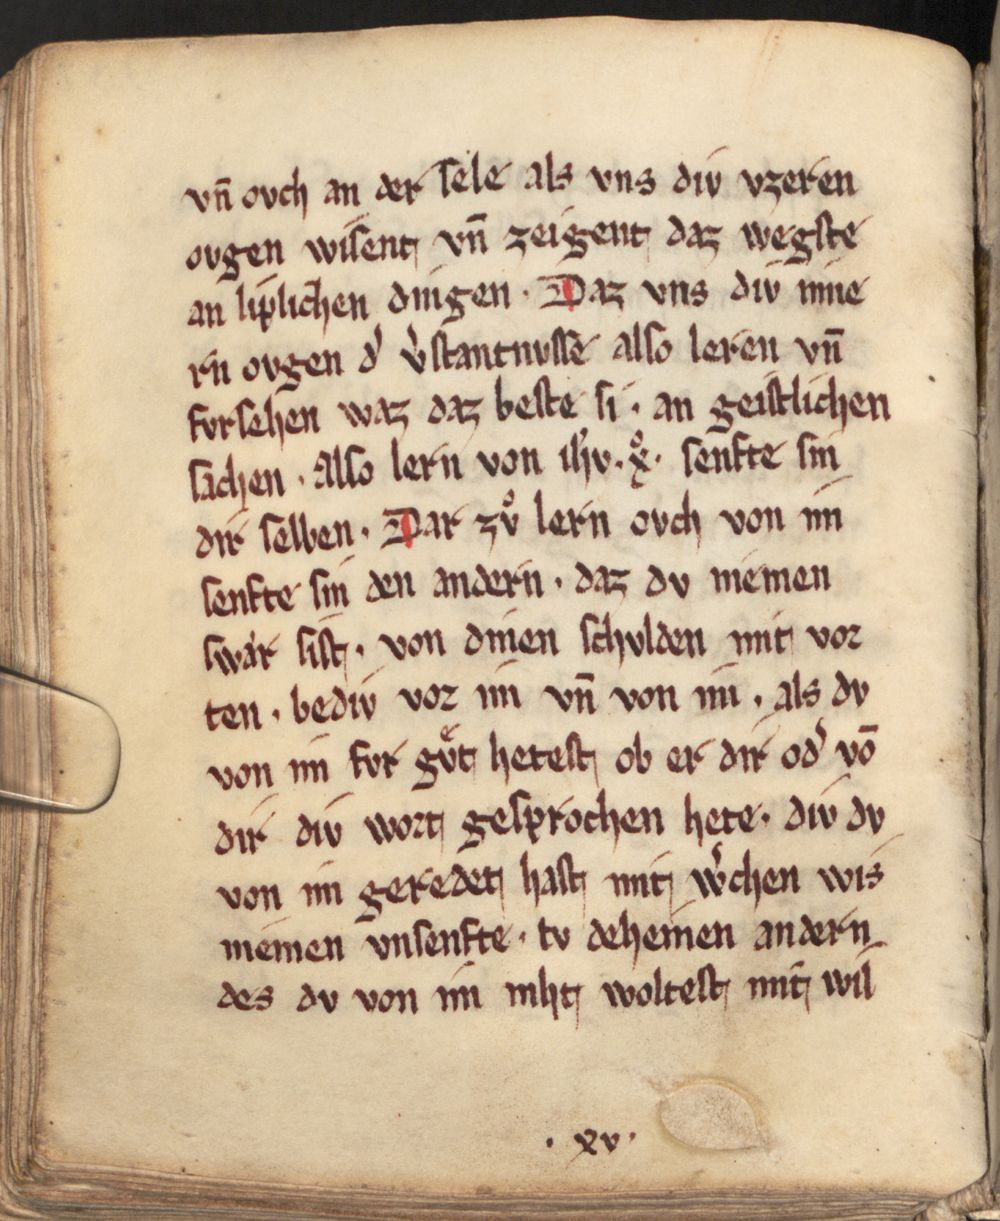 vn̄ ovch an der sele als vns div vzeren
ovgen wisent vn̄ zeigent daz wegste
an liplichen dingen · Daz vns div inne
rn ovgen d̾ v̾stantnvsse also leren vn̄
fvrsehen waz daz beste si · an geistlichen
sachen · Also lern von ih̾v · xͦ · senfte sin
dir selben · Dar zvͦ lern ovch von im
senfte sin den andern · daz dv niemen
swar sist · von dinen schvlden mit vor
ten · bediv vor im vn̄ von im · als dv
von im fvr gvͦt hetest ob er dir od̾ vō
dir div wort gesprochen hete · div dv
von im geredet hast mit w̾chen wis
niemen vnsenfte · tv deheinen andern
des dv von im niht woltest mit wil
· xv ·